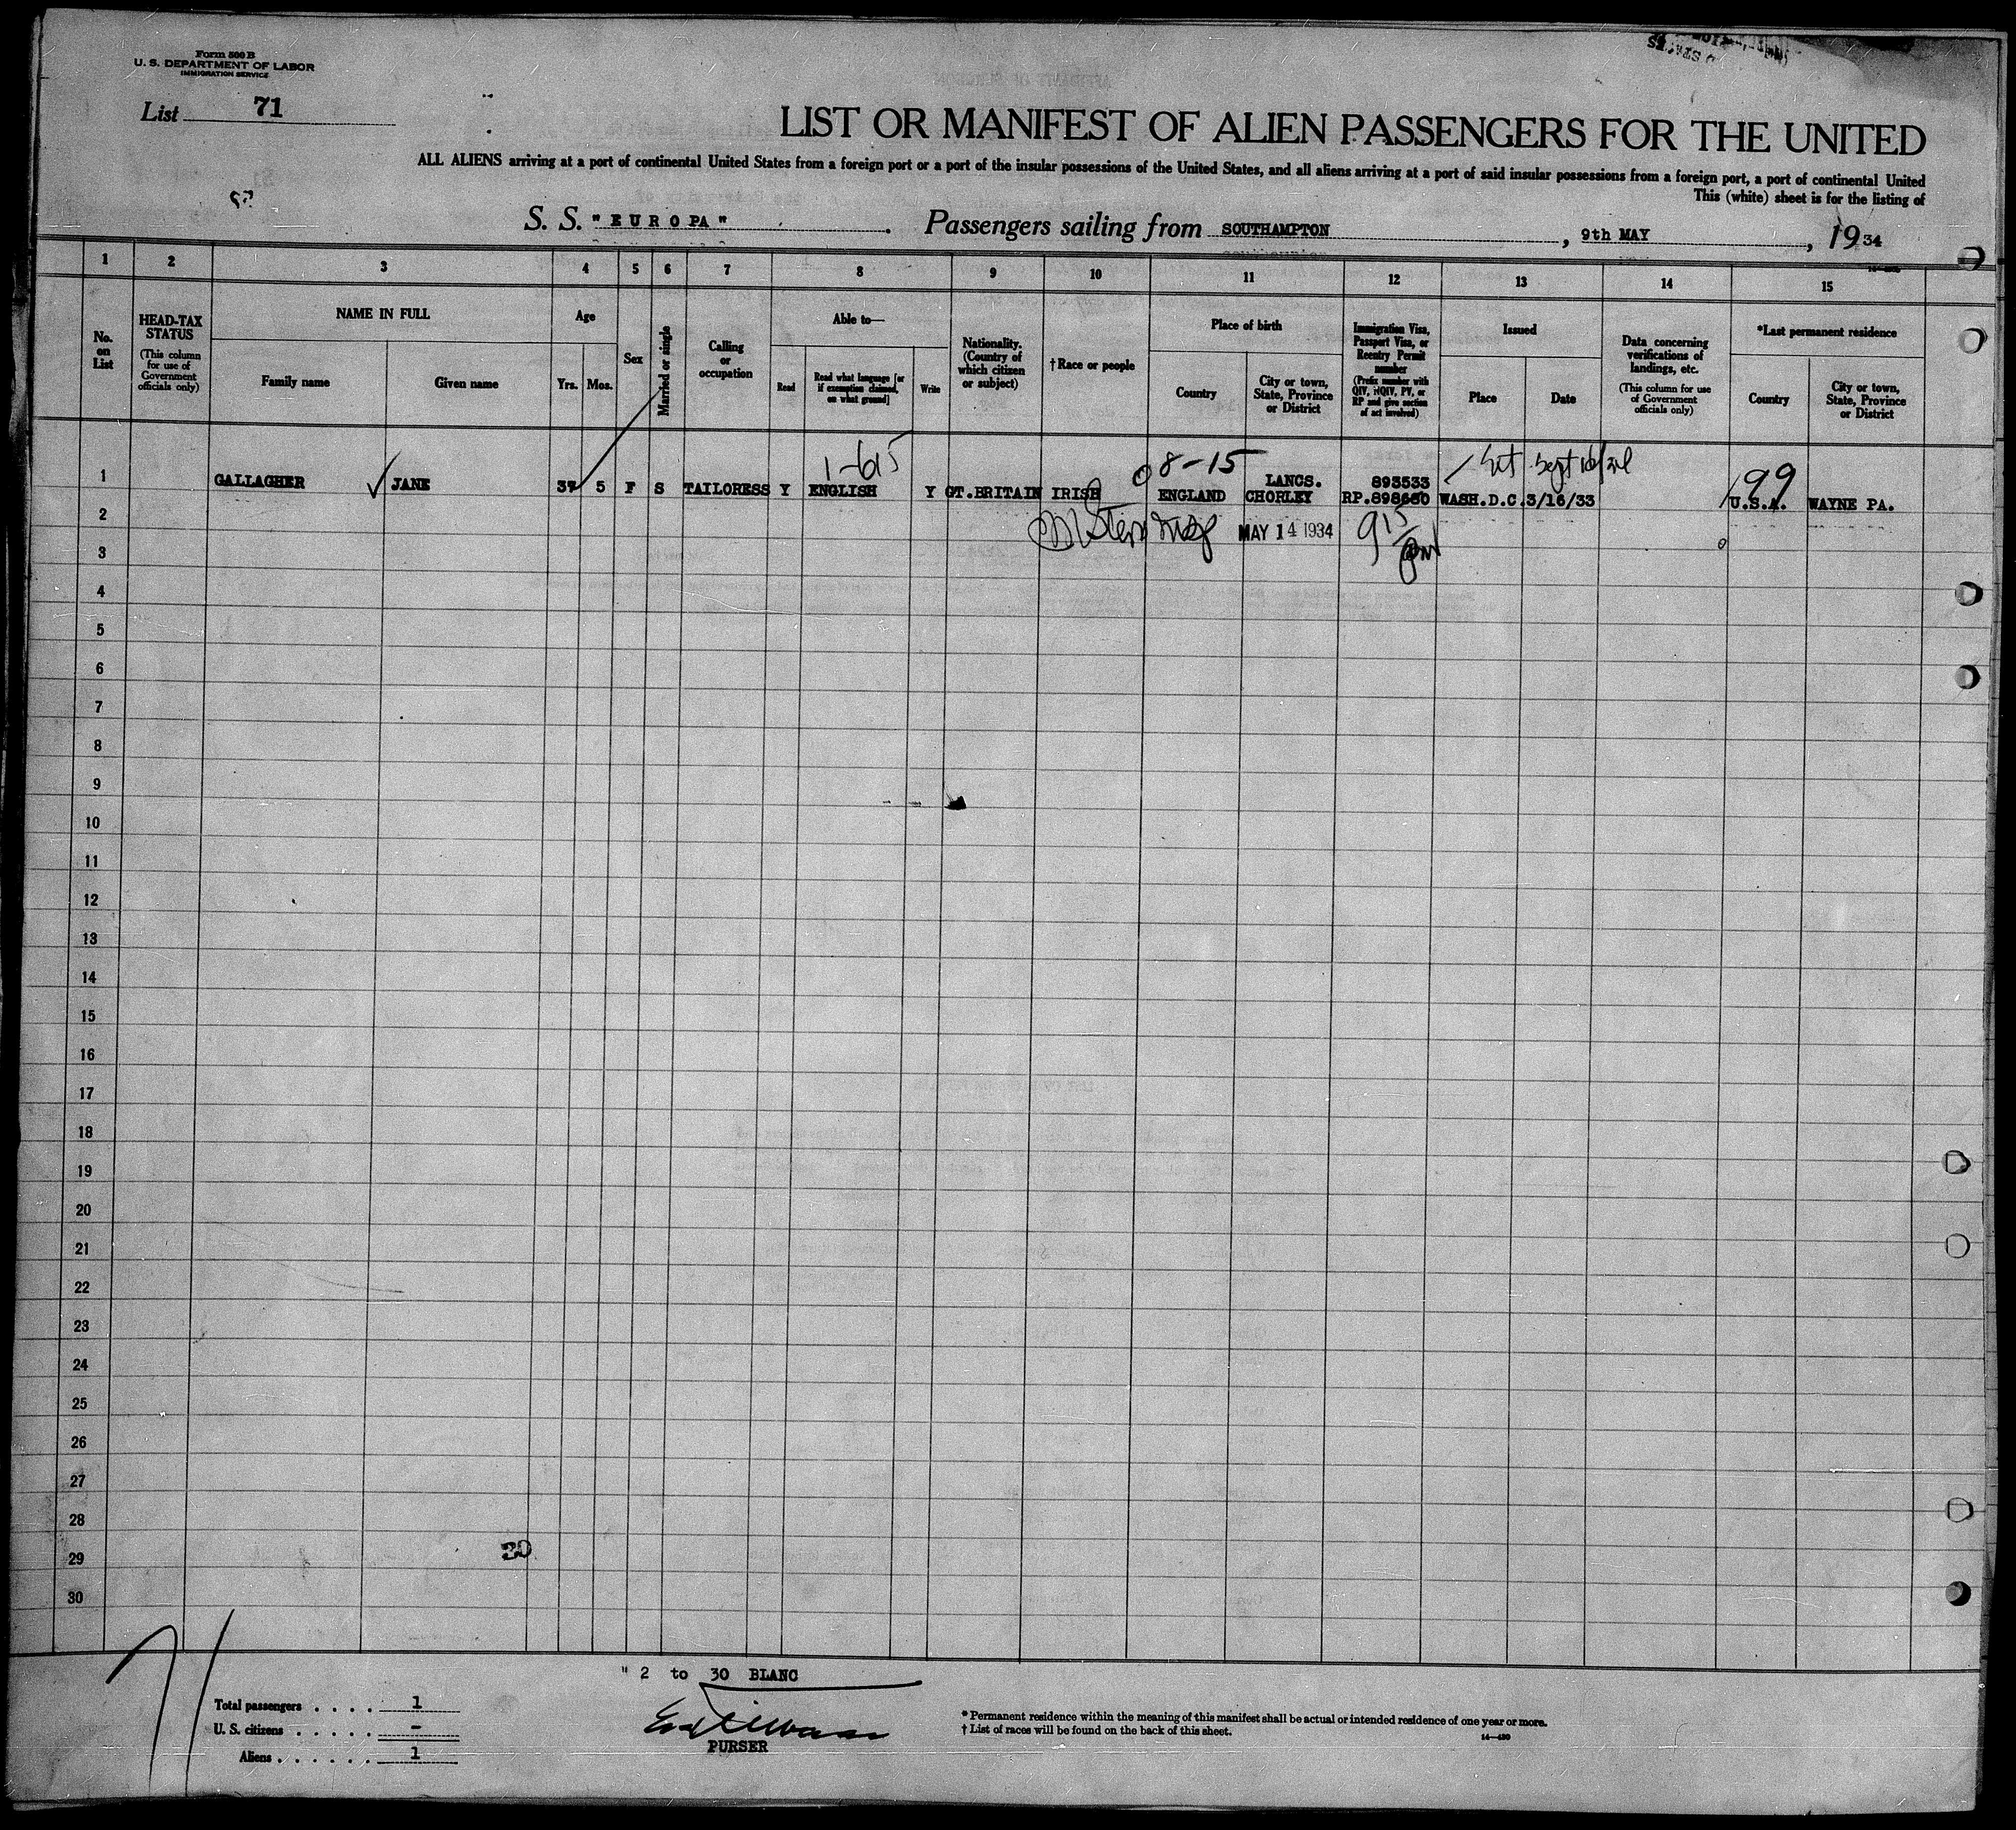 Form 500 B
U. S. DEPARTMENT OF LABOR
IMMIGRATION SERVICE
List 71
LIST OR MANIFEST OF ALIEN PASSENGERS FOR THE UNITED
ALL ALIENS arriving at a port of continental United States from a foreign port or a port of the insular possessions of the United States, and all aliens arriving at a port of said insular possessions from a foreign port, a port of continental United
This (white) sheet is for the listing of
S. S. "EUROPA". Passengers sailing from SOUTHAMPTON, 9th MAY, 1934
1 2 3 4 5 6 7 8 9 10 11 12 13 14 15
No. on List
HEAD-TAX STATUS
(This column for use of Government officials only)
NAME IN FULL
Family name
Given name
Age
Yrs. Mos.
Sex
Married or single
Calling or occupation
Able to—
Read
Read what language [or if exemption claimed, on what ground]
Write
Nationality. (Country of which citizen or subject)
†Race or people
Place of birth
Country
City or town, State, Province or District
Immigration Visa, Passport Visa, or Reentry Permit number
(Prefix number with QIV, NQIV, PV, or RP and give section of act involved)
Issued
Place
Date
Data concerning verifications of landings, etc.
(This column for use of Government officials only)
*Last permanent residence
Country
City or town, State, Province or District
1-615 08-15 199
LANCS. 893533
1 GALLAGHER JANE 37 5 F S TAILORESS Y ENGLISH Y GT.BRITAIN IRISH ENGLAND CHORLEY RP.898680 WASH.D.C. 3/16/33 U.S.A. WAYNE PA.
2 MAY 14 1934 915
3
4
5
6
7
8
9
10
11
12
13
14
15
16
17
18
19
20
21
22
23
24
25
26
27
28
29
30
30
71
" 2 to 30 BLANC
Total passengers . . . . 1
U. S. citizens . . . . . –
Aliens . . . . . . 1
PURSER
* Permanent residence within the meaning of this manifest shall be actual or intended residence of one year or more.
† List of races will be found on the back of this sheet.
14—480